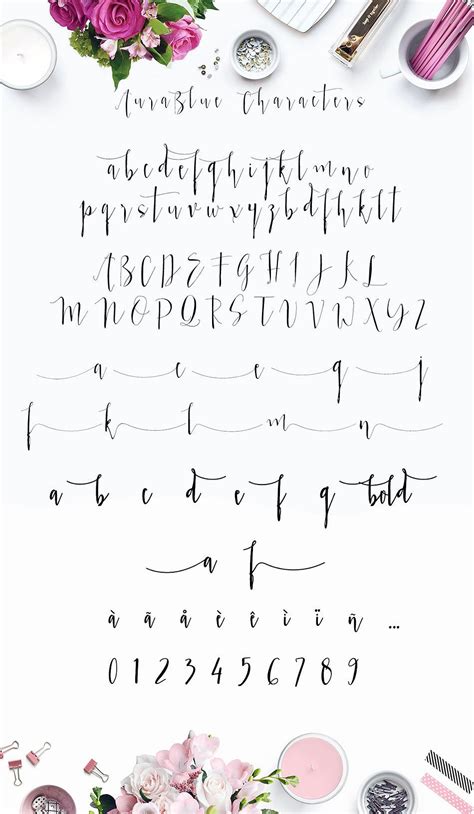 AuraBlue Characters
abcdefghijklmno
pqrstuvwxyzbdfhkltt
ABCDEFGHIJKL
MNOPQRSTUVWXYZ
a c e q j
f k l m n
a b c d e f q bold
a f
à ã å è ê ì ï ñ ...
0123456789